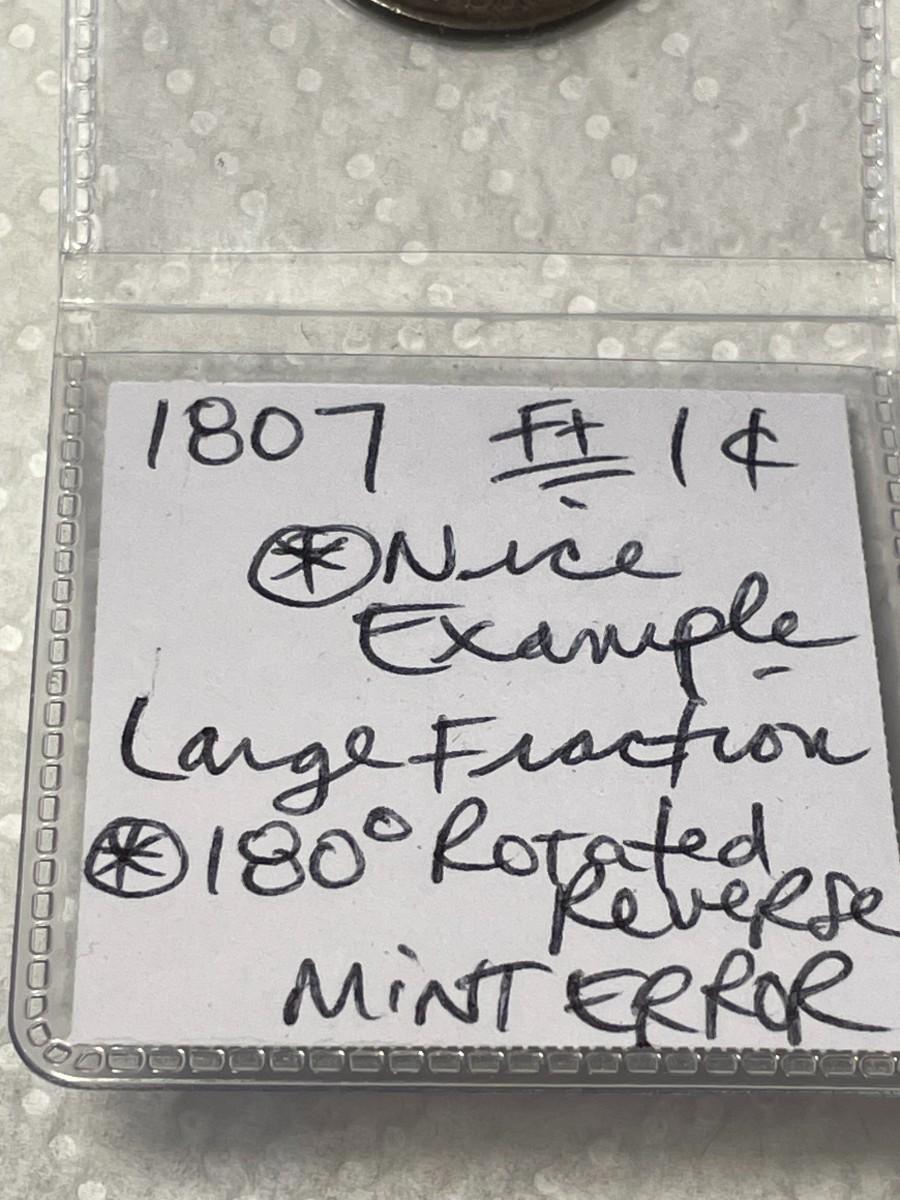 1807 F+ 1¢
Nice
Example
Large Fraction
180° Rotated
Reverse
MINT ERROR